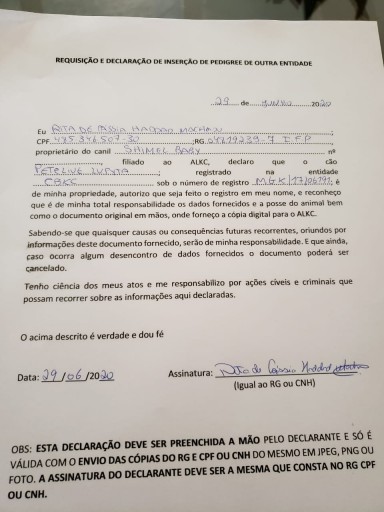 REQUISIÇÃO E DECLARAÇÃO DE INSERÇÃO DE PEDIGREE DE OUTRA ENTIDADE
29 de JUNHO 2020
Eu RITA DE CÁSSIA HADDAD
CPF RG I.F.P
proprietário do canil BABY nº
filiado ao ALKC, declaro que o cão
registrado na entidade
CBKC sob o número de registro é
de minha propriedade, autorizo que seja feito o registro em meu nome, e reconheço
que é de minha total responsabilidade os dados fornecidos e a posse do animal bem
como o documento original em mãos, onde forneço a cópia digital para o ALKC.
Sabendo-se que quaisquer causas ou consequências futuras recorrentes, oriundos por
informações deste documento fornecido, serão de minha responsabilidade. E que ainda,
caso ocorra algum desencontro de dados fornecidos o documento poderá ser
cancelado.
Tenho ciência dos meus atos e me responsabilizo por ações cíveis e criminais que
possam recorrer sobre as informações aqui declaradas.
O acima descrito é verdade e dou fé
Data: 29/06/2020 Assinatura: Rita de Cássia Haddad
(Igual ao RG ou CNH)
OBS: ESTA DECLARAÇÃO DEVE SER PREENCHIDA A MÃO PELO DECLARANTE E SÓ É
VÁLIDA COM O ENVIO DAS CÓPIAS DO RG E CPF OU CNH DO MESMO EM JPEG, PNG OU
FOTO. A ASSINATURA DO DECLARANTE DEVE SER A MESMA QUE CONSTA NO RG CPF
OU CNH.